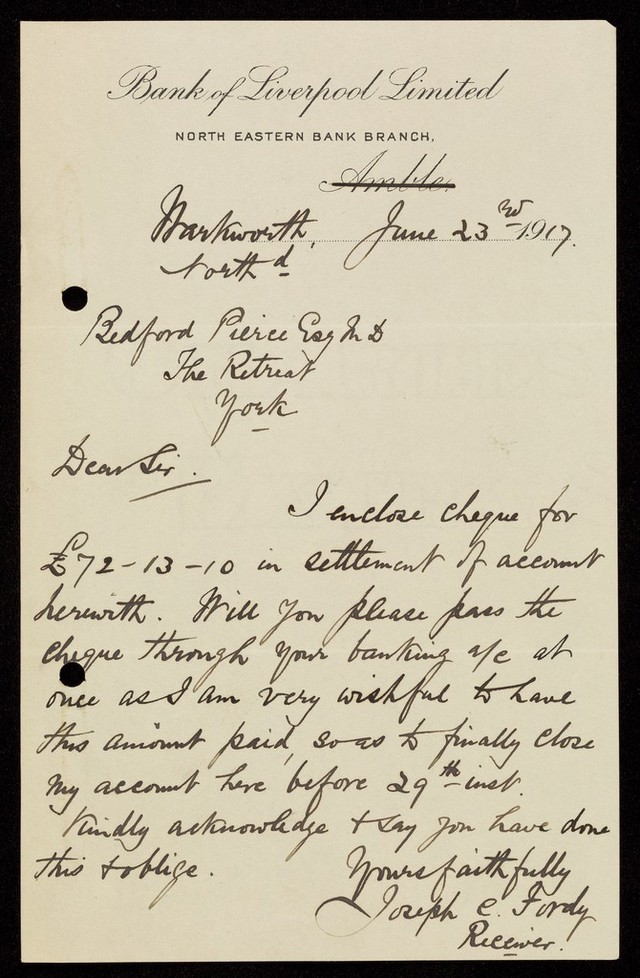 Bank of Liverpool Limited
NORTH EASTERN BANK BRANCH,
Amble.
Warkworth, June 23rd 1917.
Northd
Bedford Pierce Esq M D
The Retreat
York
Dear Sir.
I enclose cheque for
£72-13-10 in settlement of account
herewith. Will you please pass the
cheque through your banking a/c at
once as I am very wishful to have
this amount paid, so as to finally close
my account here before 29th inst.
Kindly acknowledge & say you have done
this & oblige.
Yours faithfully
Joseph C. Fordy
Receiver.